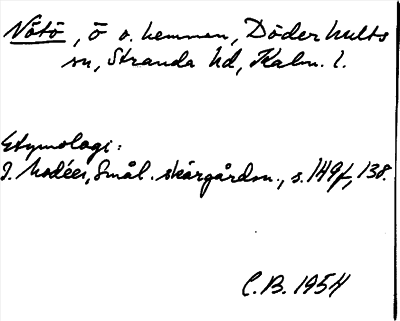 Nötö, ö o. hemman, Döderhults
sn, Stranda hd, Kalm. l.
Etymologi:
I. Modéer, Smål. skärgårdsn., s. 149f, 138.
C.B. 1954